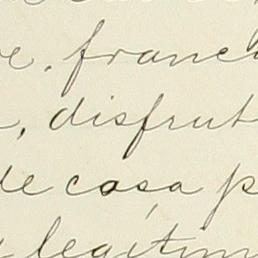 franc
disfrut
de casa p
legítim